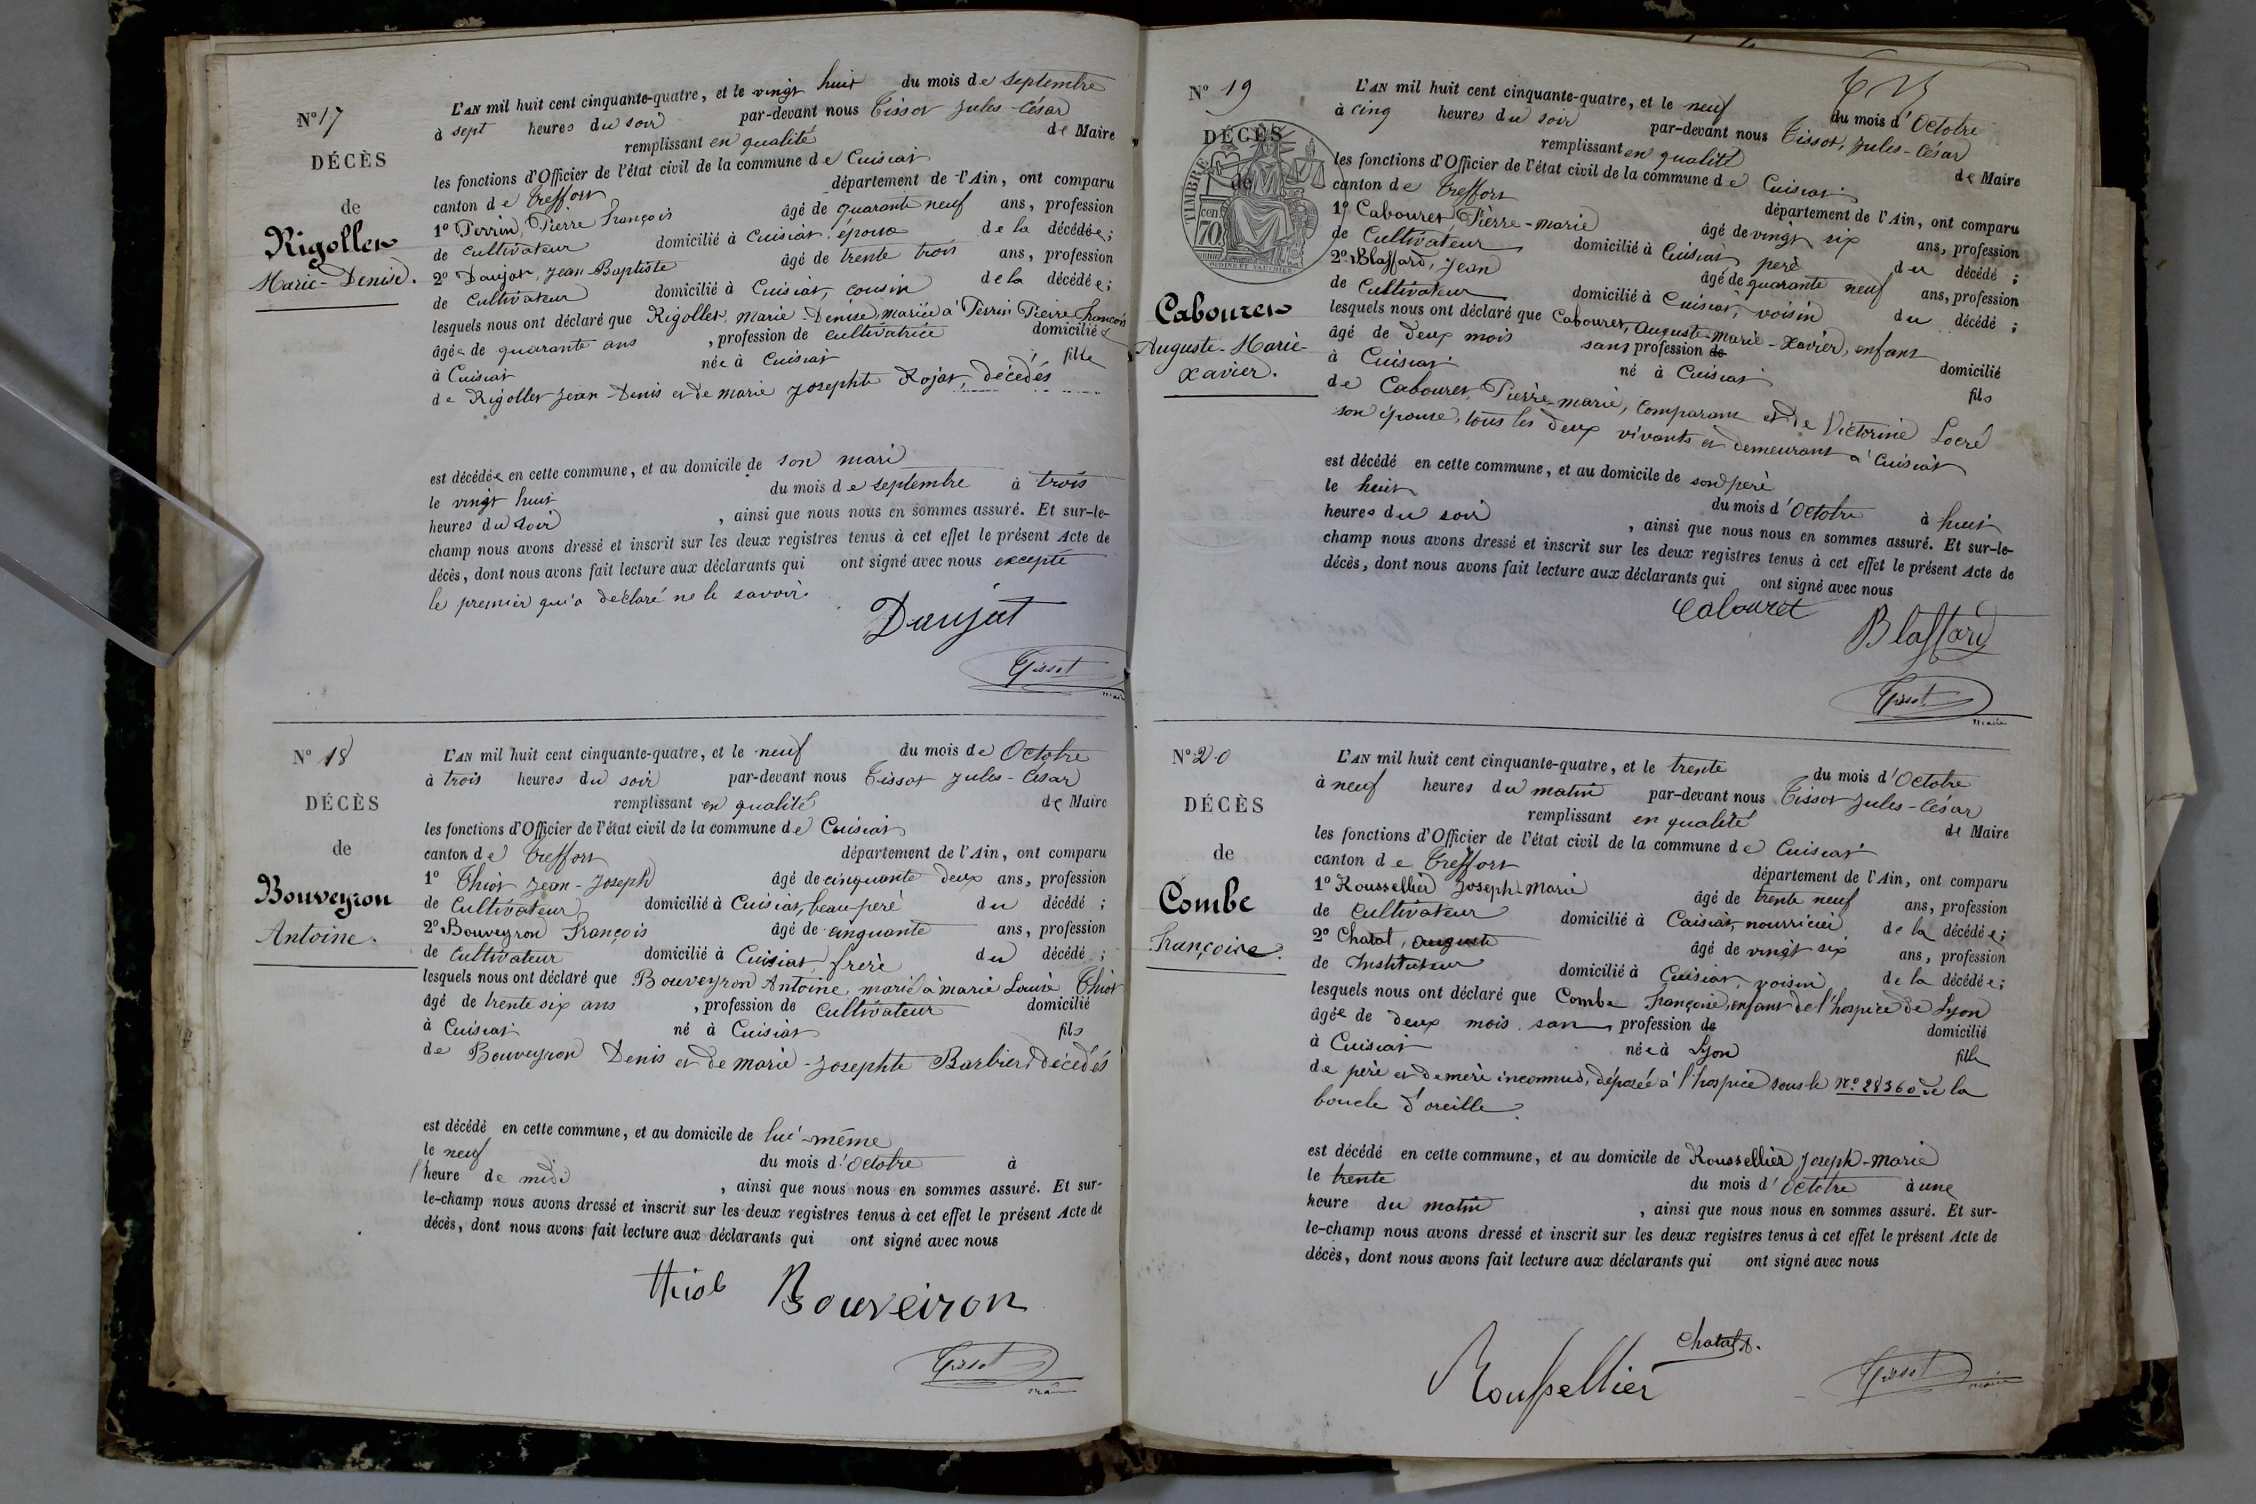 N° 17
DÉCÈS
de
Rigollet
Marie-Denise.
L'AN mil huit cent cinquante-quatre, et le vingt huit du mois de septembre
à sept heures du soir par-devant nous Tissot Jules-César
remplissant en qualité de Maire
les fonctions d'Officier de l'état civil de la commune de Cuisiat
canton de Treffort département de l'Ain, ont comparu
1° Perrin, Pierre François âgé de quarante neuf ans, profession
de cultivateur domicilié à Cuisiat, époux de la décédée;
2° Daujat, Jean-Baptiste âgé de trente trois ans, profession
de cultivateur domicilié à Cuisiat, cousin de la décédée;
lesquels nous ont déclaré que Rigollet, Marie-Denise, mariée à Perrin Pierre François
âgée de quarante ans, profession de cultivatrice domiciliée
à Cuisiat née à Cuisiat fille
de Rigollet Jean-Denis et de marie Josephte Rojat, décédés
est décédée en cette commune, et au domicile de son mari
le vingt huit du mois de septembre à trois
heures du soir, ainsi que nous nous en sommes assuré. Et sur-le-
champ nous avons dressé et inscrit sur les deux registres tenus à cet effet le présent Acte de
décès, dont nous avons fait lecture aux déclarants qui ont signé avec nous excepté
le premier qui a déclaré ne le savoir.
Daujat
Tissot
maire
N° 18
DÉCÈS
de
Bouveyron
Antoine.
L'AN mil huit cent cinquante-quatre, et le neuf du mois de Octobre
à trois heures du soir par-devant nous Tissot Jules-César
remplissant en qualité de Maire
les fonctions d'Officier de l'état civil de la commune de Cuisiat
canton de Treffort département de l'Ain, ont comparu
1° Thiot Jean-Joseph âgé de cinquante deux ans, profession
de Cultivateur domicilié à Cuisiat, beau-père du décédé;
2° Bouveyron François âgé de cinquante ans, profession
de Cultivateur domicilié à Cuisiat, frère du décédé;
lesquels nous ont déclaré que Bouveyron Antoine, marié à marie Louise Thiot
âgé de trente six ans, profession de Cultivateur domicilié
à Cuisiat né à Cuisiat fils
de Bouveyron Denis et de marie-Josephte Barbier, décédés
est décédé en cette commune, et au domicile de lui-même
le neuf du mois d'Octobre à
heure de midi, ainsi que nous nous en sommes assuré. Et sur-
le-champ nous avons dressé et inscrit sur les deux registres tenus à cet effet le présent Acte de
décès, dont nous avons fait lecture aux déclarants qui ont signé avec nous
thiot Bouveiron
Tissot
N° 19
DÉCÈS
de
TIMBRE
70 cen
Cabouret
Auguste-Marie-
Xavier.
L'AN mil huit cent cinquante-quatre, et le neuf du mois d'Octobre
à cinq heures du soir par-devant nous Tissot, Jules-César
remplissant en qualité de Maire
les fonctions d'Officier de l'état civil de la commune de Cuisiat
canton de Treffort département de l'Ain, ont comparu
1° Cabouret Pierre-marie âgé de vingt six ans, profession
de Cultivateur domicilié à Cuisiat, père du décédé;
2° Blaffard, Jean âgé de quarante neuf ans, profession
de Cultivateur domicilié à Cuisiat, voisin du décédé;
lesquels nous ont déclaré que Cabouret, Auguste-Marie-Xavier, enfant
âgé de deux mois sans profession de domicilié
à Cuisiat né à Cuisiat fils
de Cabouret, Pierre-marie, comparant et de Victorine Locré
son épouse, tous les deux vivants et demeurant à Cuisiat
est décédé en cette commune, et au domicile de son père
le huit du mois d'Octobre à huit
heures du soir, ainsi que nous nous en sommes assuré. Et sur-le-
champ nous avons dressé et inscrit sur les deux registres tenus à cet effet le présent Acte de
décès, dont nous avons fait lecture aux déclarants qui ont signé avec nous
Cabouret
Blaffard
Tissot
maire
N° 20
DÉCÈS
de
Combe
Françoise.
L'AN mil huit cent cinquante-quatre, et le trente du mois d'Octobre
à neuf heures du matin par-devant nous Tissot Jules-César
remplissant en qualité de Maire
les fonctions d'Officier de l'état civil de la commune de Cuisiat
canton de Treffort département de l'Ain, ont comparu
1° Roussellier Joseph-Marie âgé de trente neuf ans, profession
de Cultivateur domicilié à Cuisiat, nourricier de la décédée;
2° Chatat, auguste âgé de vingt six ans, profession
de Instituteur domicilié à Cuisiat, voisin de la décédée;
lesquels nous ont déclaré que Combe Françoise, enfant de l'hospice de Lyon
âgée de deux mois sans profession de domicilié
à Cuisiat née à Lyon fille
de père et de mère inconnus, déposée à l'hospice sous le N° 28360 de la
boucle d'oreille
est décédé en cette commune, et au domicile de Roussellier Joseph-Marie
le trente du mois d'Octobre à une
heure du matin, ainsi que nous nous en sommes assuré. Et sur-
le-champ nous avons dressé et inscrit sur les deux registres tenus à cet effet le présent Acte de
décès, dont nous avons fait lecture aux déclarants qui ont signé avec nous
Chatat A.
Roussellier
Tissot
maire